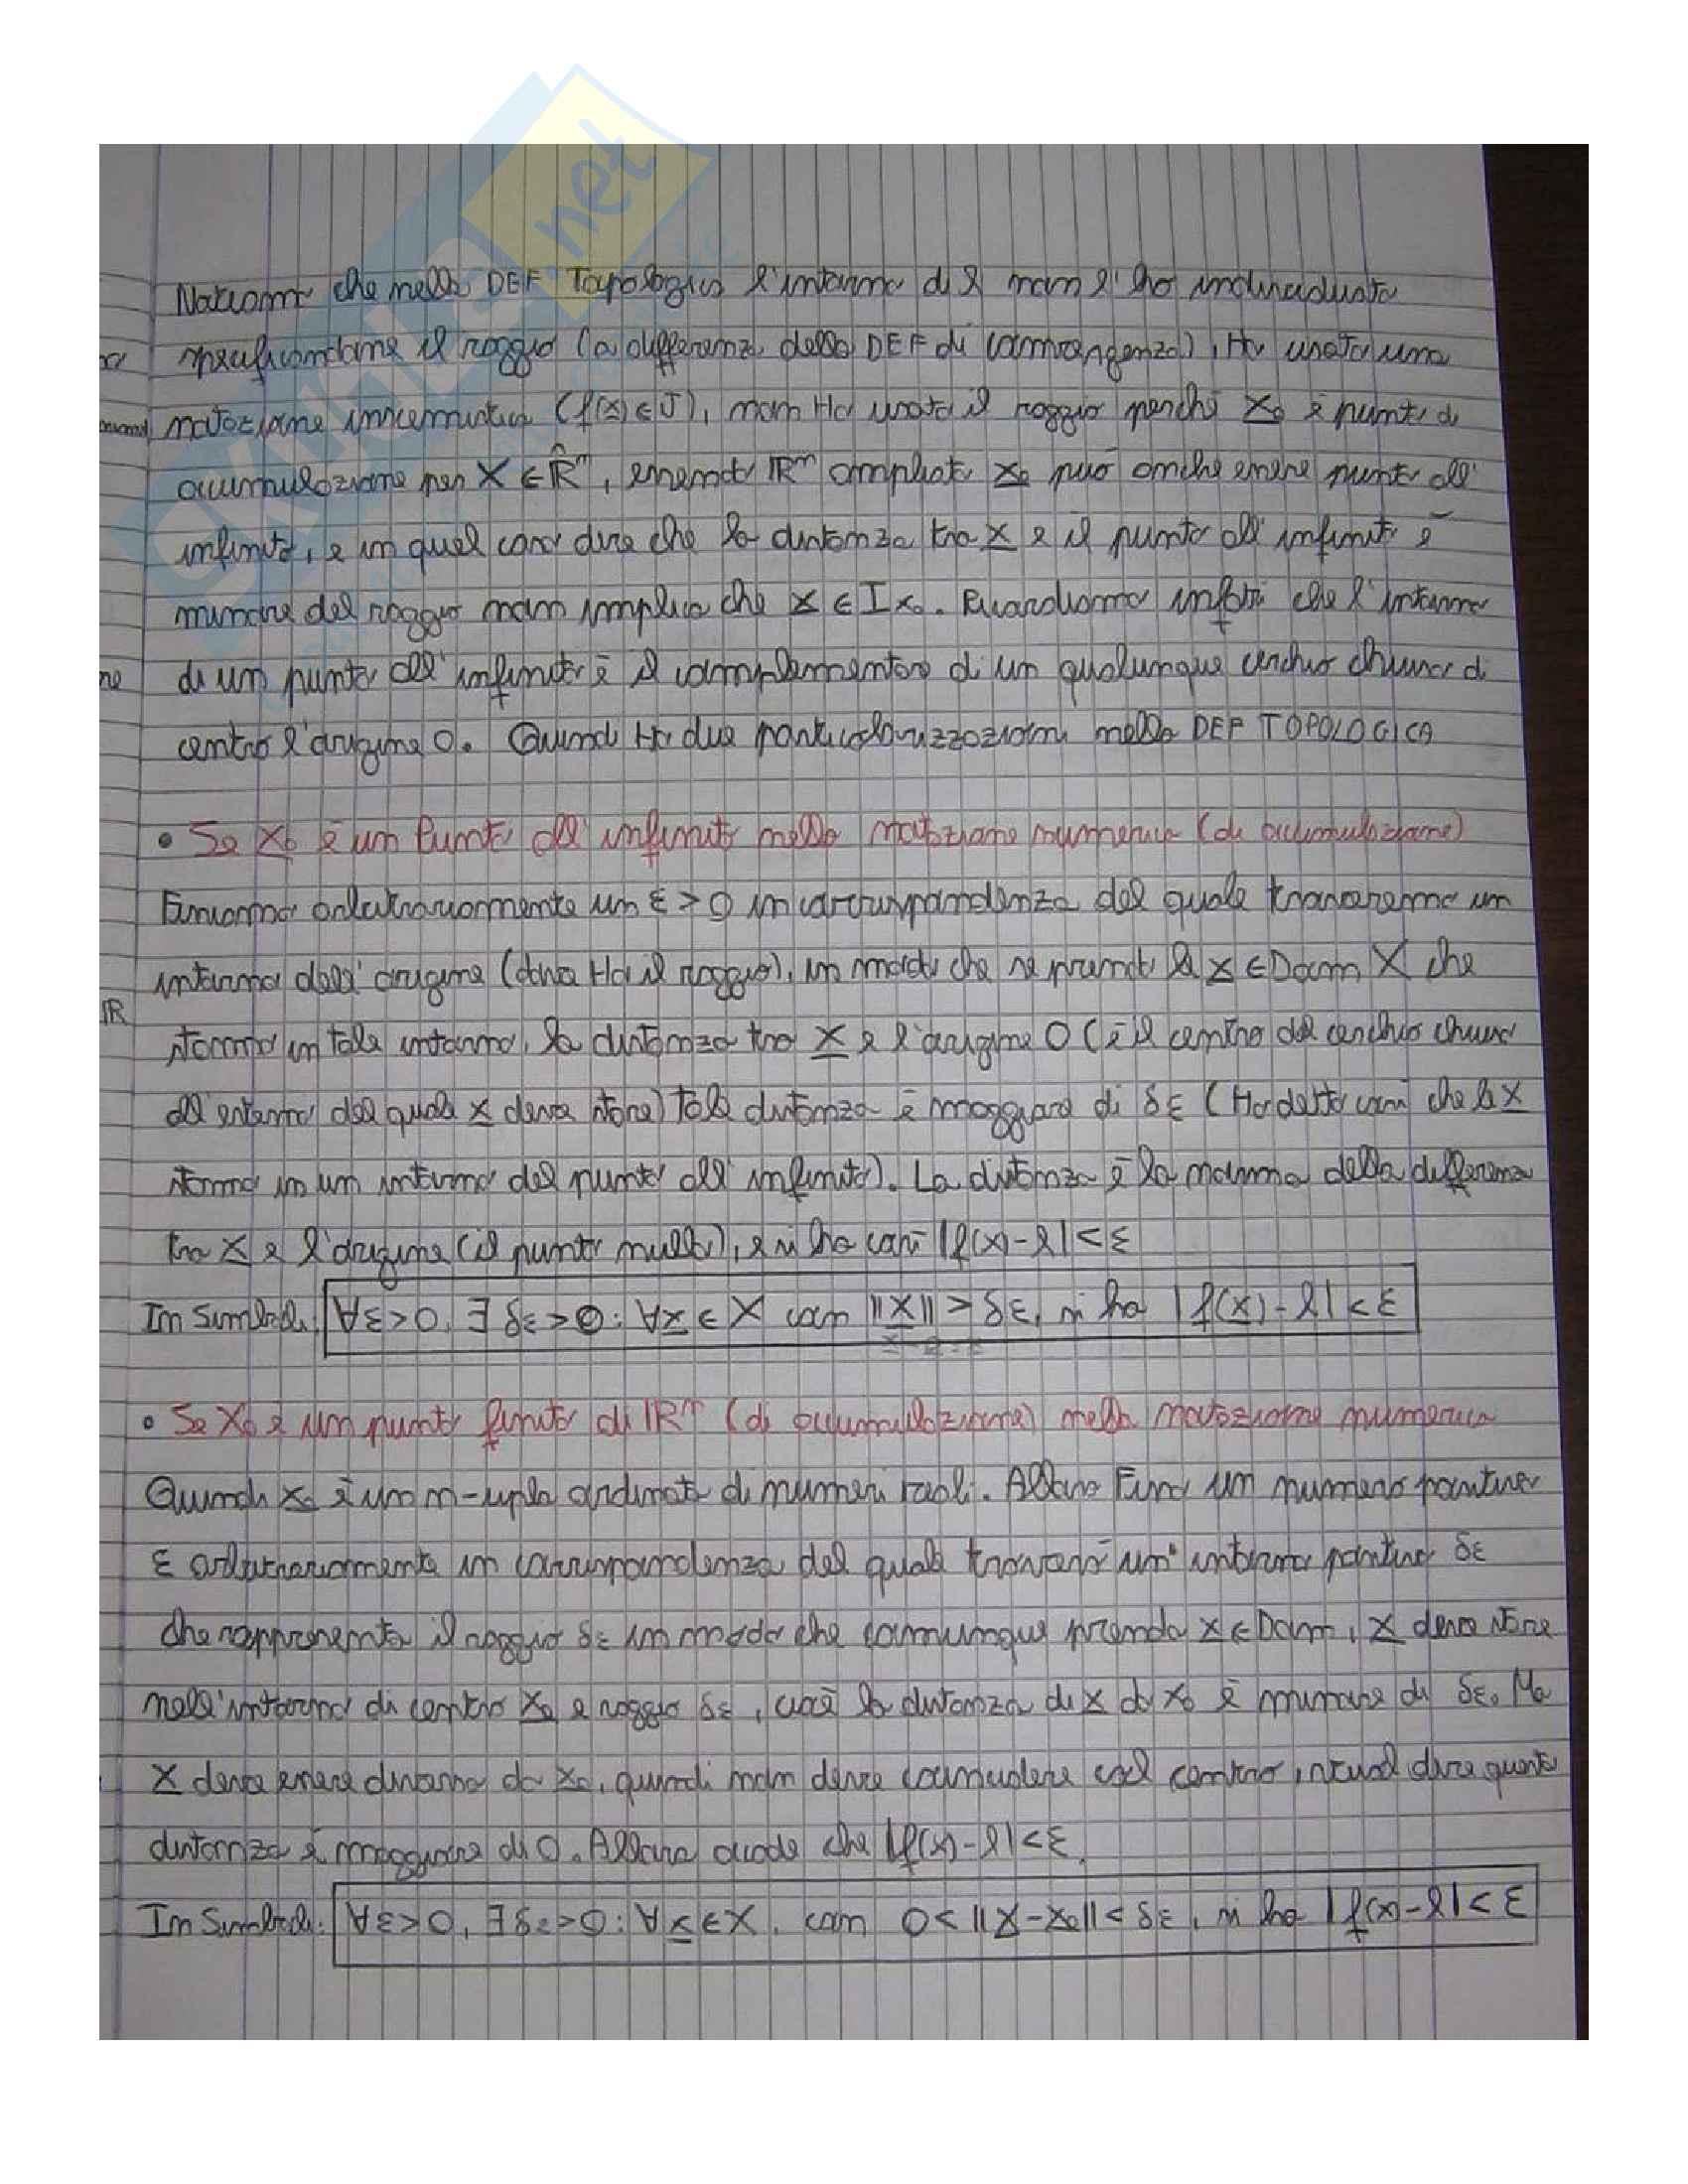 SKUOLA.net
Notiamo che nella DEF Topologica l'intorno di l non l'ho individuato
specificandone il raggio (a differenza della DEF di convergenza), Ho usato una
notazione insiemistica (f(x) ∈ J), non Ho usato il raggio perchè x₀ è punto di
accumulazione per X ∈ R̂ⁿ, essendo Rⁿ ampliato x₀ può anche essere punto all'
infinito, e in quel caso dire che la distanza tra x e il punto all'infinito è
minore del raggio non implica che x ∈ Ix₀. Ricordiamo infatti che l'intorno
di un punto all'infinito è il complementare di un qualunque cerchio chiuso di
centro l'origine O. Quindi Ho due particolarizzazioni nella DEF TOPOLOGICA
• Se x₀ è un Punto all'infinito nella notazione numerica (di accumulazione)
Fissiamo arbitrariamente un ε > 0 in corrispondenza del quale troveremo un
intorno dell'origine (dove Ho il raggio), in modo che se prendo le x ∈ Dom X che
stanno in tale intorno, la distanza tra x e l'origine O (è il centro del cerchio chiuso
all'esterno del quale x deve stare) tale distanza è maggiore di δε (Ho detto così che le x
stanno in un intorno del punto all'infinito). La distanza è la norma della differenza
tra x e l'origine (il punto nullo), e si ha così |f(x)-l| < ε
In Simboli: ∀ε>0, ∃ δε>0 : ∀x ∈ X con ||x|| > δε, si ha |f(x)-l| < ε
• Se x₀ è un punto finito di Rⁿ (di accumulazione) nella notazione numerica
Quindi x₀ è un n-upla ordinata di numeri reali. Allora Fisso un numero positivo
ε arbitrariamente in corrispondenza del quale troverò un intorno positivo δε
che rappresenta il raggio δε in modo che comunque prenda x ∈ Dom, x deve stare
nell'intorno di centro x₀ e raggio δε, cioè la distanza di x da x₀ è minore di δε. Ma
x deve essere diverso da x₀, quindi non deve coincidere col centro, vuol dire questa
distanza è maggiore di 0. Allora accade che |f(x)-l| < ε.
In Simboli: ∀ε>0, ∃ δε>0 : ∀x ∈ X, con 0 < ||x-x₀|| < δε, si ha |f(x)-l| < ε